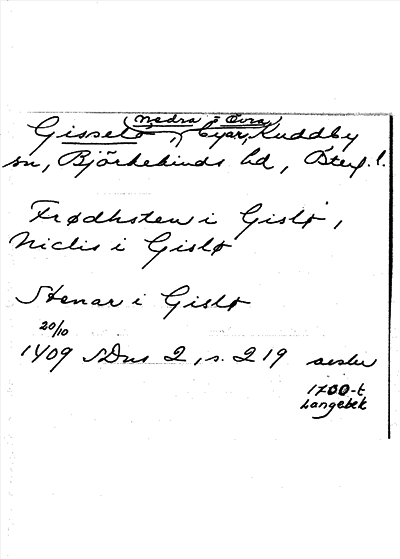 Nedra - Övra
Gisselö, byar, Kuddby
sn, Björkekinds hd, Östergl.
Frødhsten i Gislø,
Niclis i Gislø
Stenar i Gislø
20/10
1409 SDns 2, s. 219
1700-t
Langebek